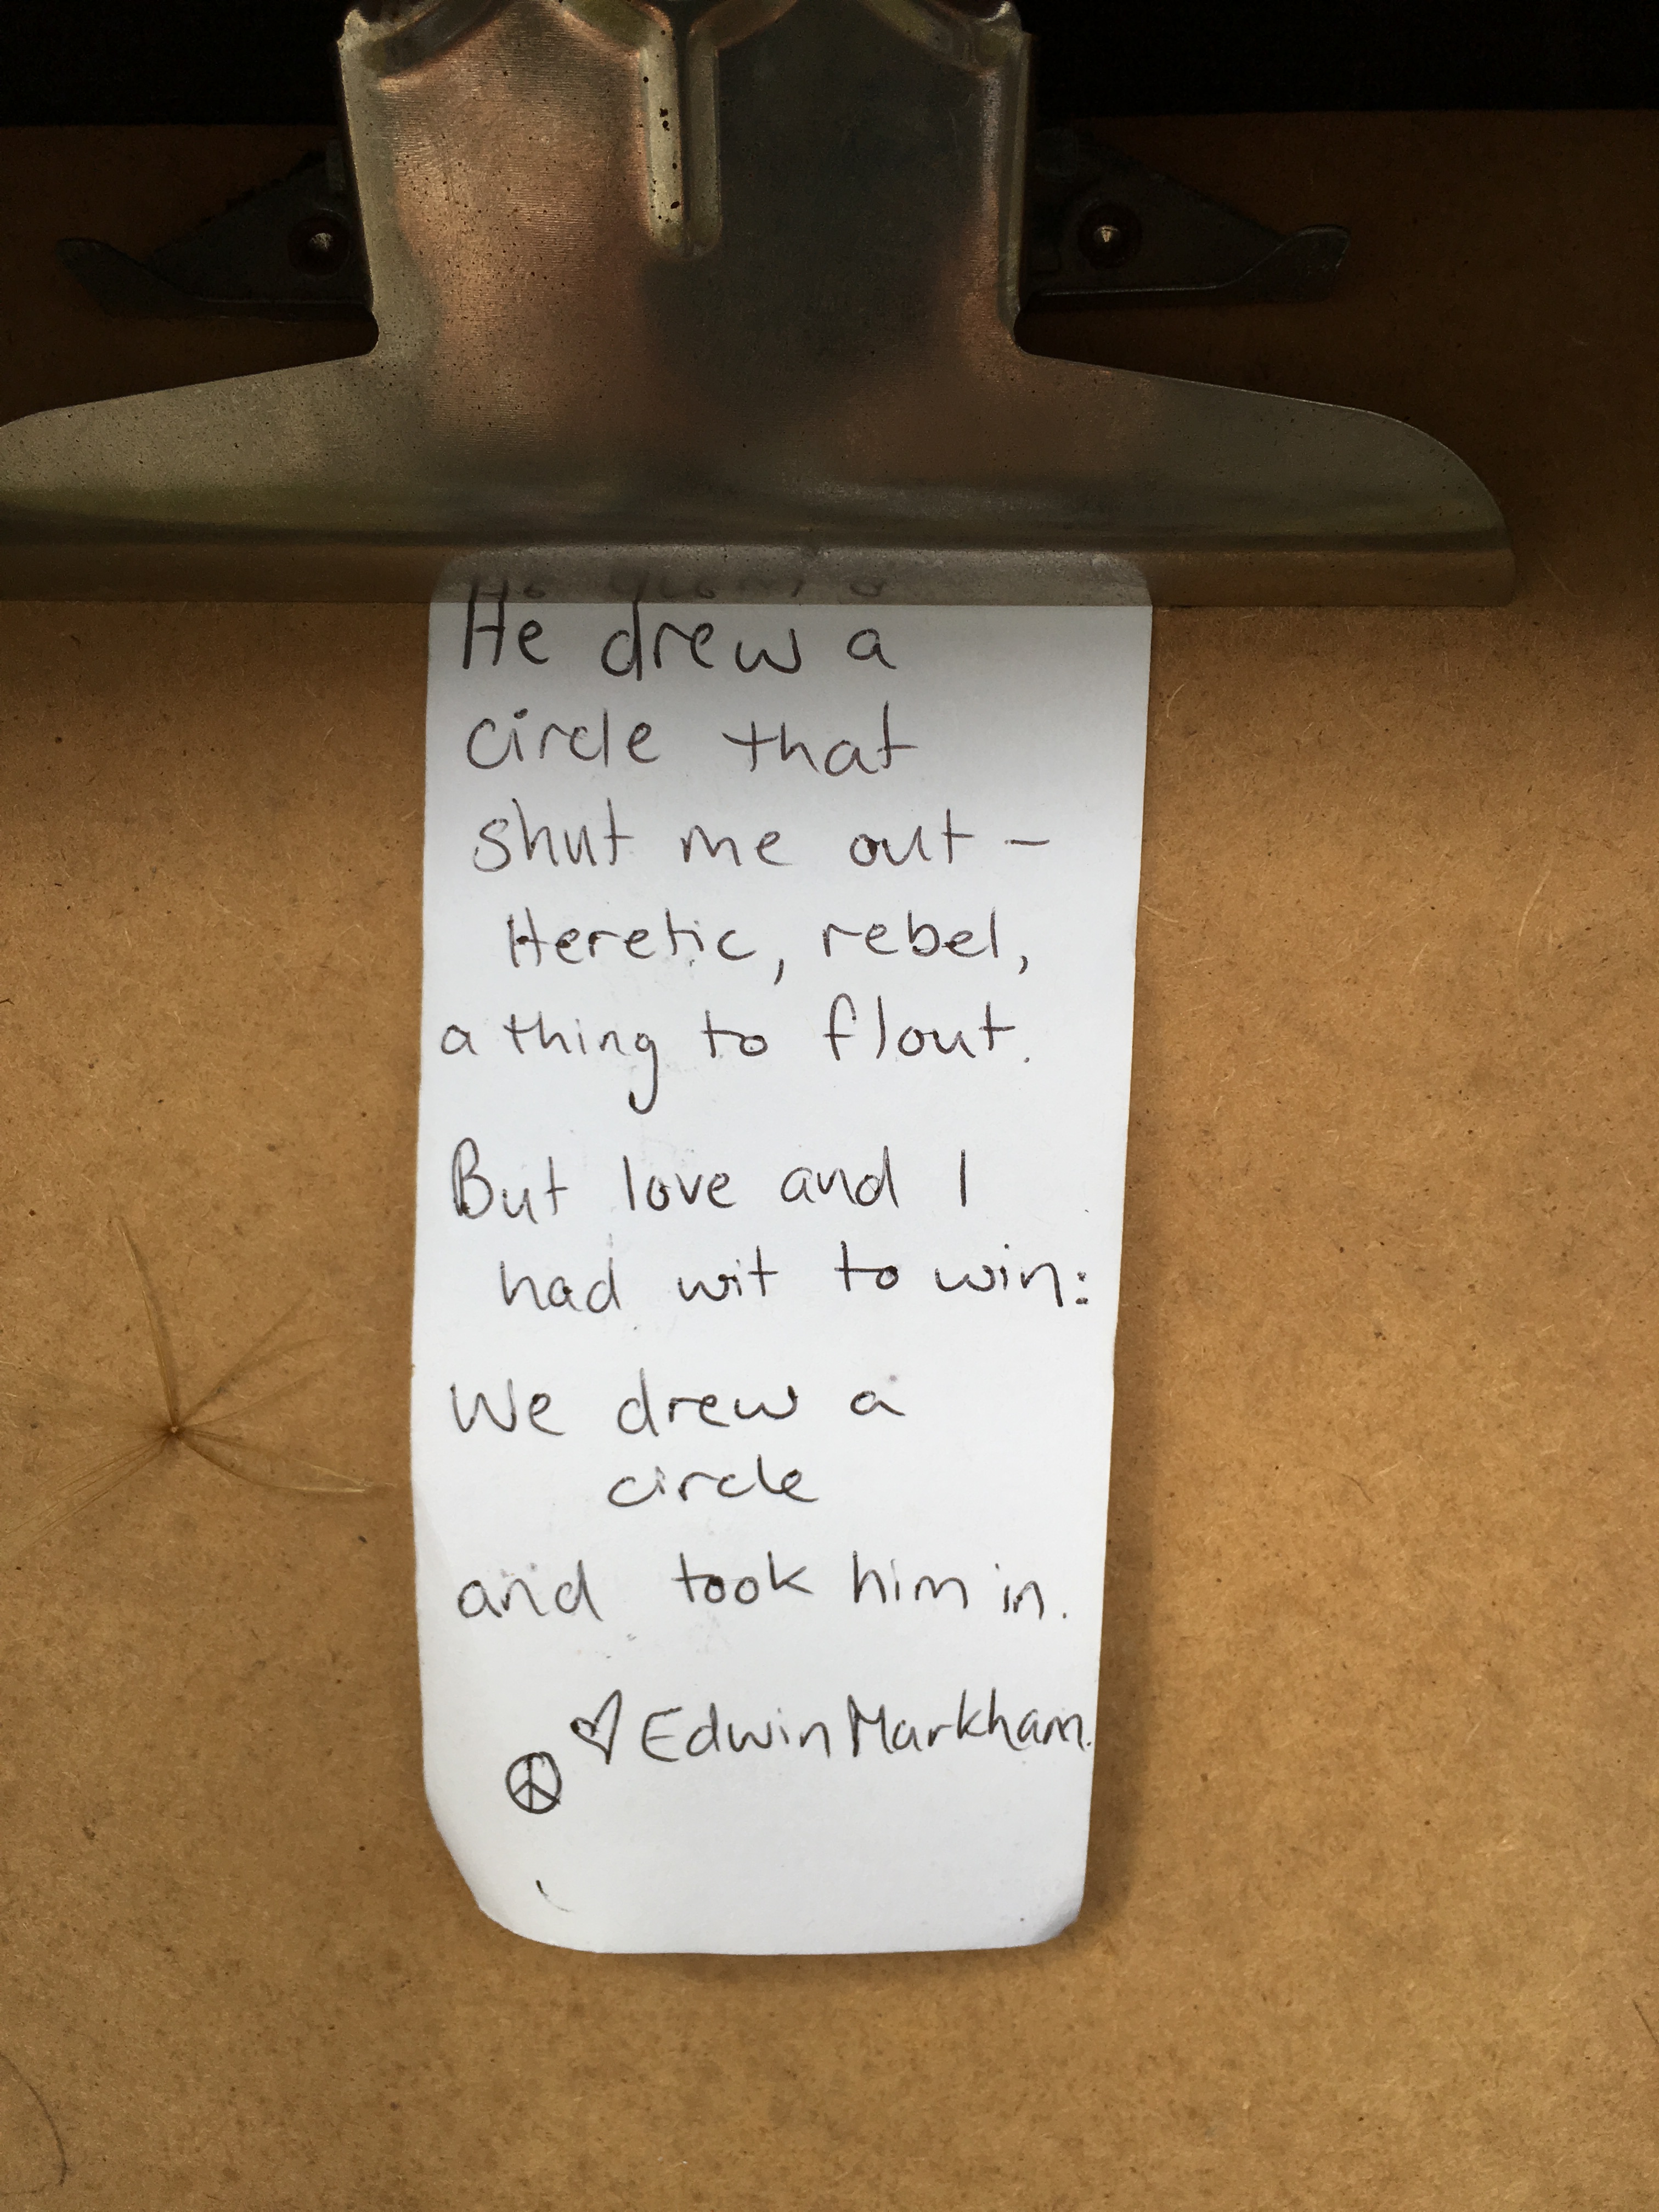 He drew a
circle that
shut me out –
Heretic, rebel,
a thing to flout.
But love and I
had wit to win:
We drew a
circle
and took him in.
♡ Edwin Markham.
☮